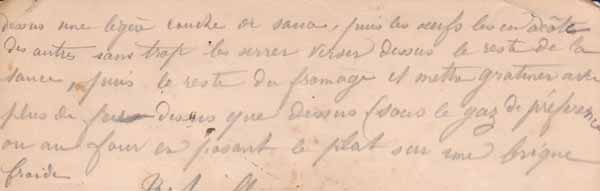 dessus une légère couche de sauce, puis les oeufs les uns à côté
des autres sans trop les serrer verser dessus le reste de la
sauce, puis le reste du fromage et mettre gratiner avec
plus de feu dessus que dessous (sous le gaz de préférence
ou au four en posant le plat sur une brique
froide